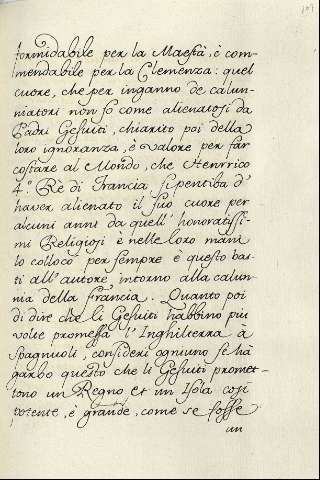 formidabile per la Maestà, è com-
mendabile per la Clemenza: quel
cuore, che per inganno de calun-
niatori non so come alienatosi da
Padri Gesuiti, chiarito poi della
loro ignoranza, è valore per far
costare al Mondo, che Henrrico
4.º Rè di Francia, si pentiba d'
haver alienato il suo cuore per
alcuni anni da quell' honoratissi-
mi Religiosi è nelle loro mani
lo collocò per sempre è questo bas-
ti all' autore intorno alla calun-
nia della francia. Quanto poi
di dire che li Gesuiti habbino più
volte promessa l' Inghilterra à
Spagnuoli, consideri ogniuno se hà
garbo questo che li Gesuiti promet-
tono un Regno et un Isola cosi
potente, è grande, come se fosse
un